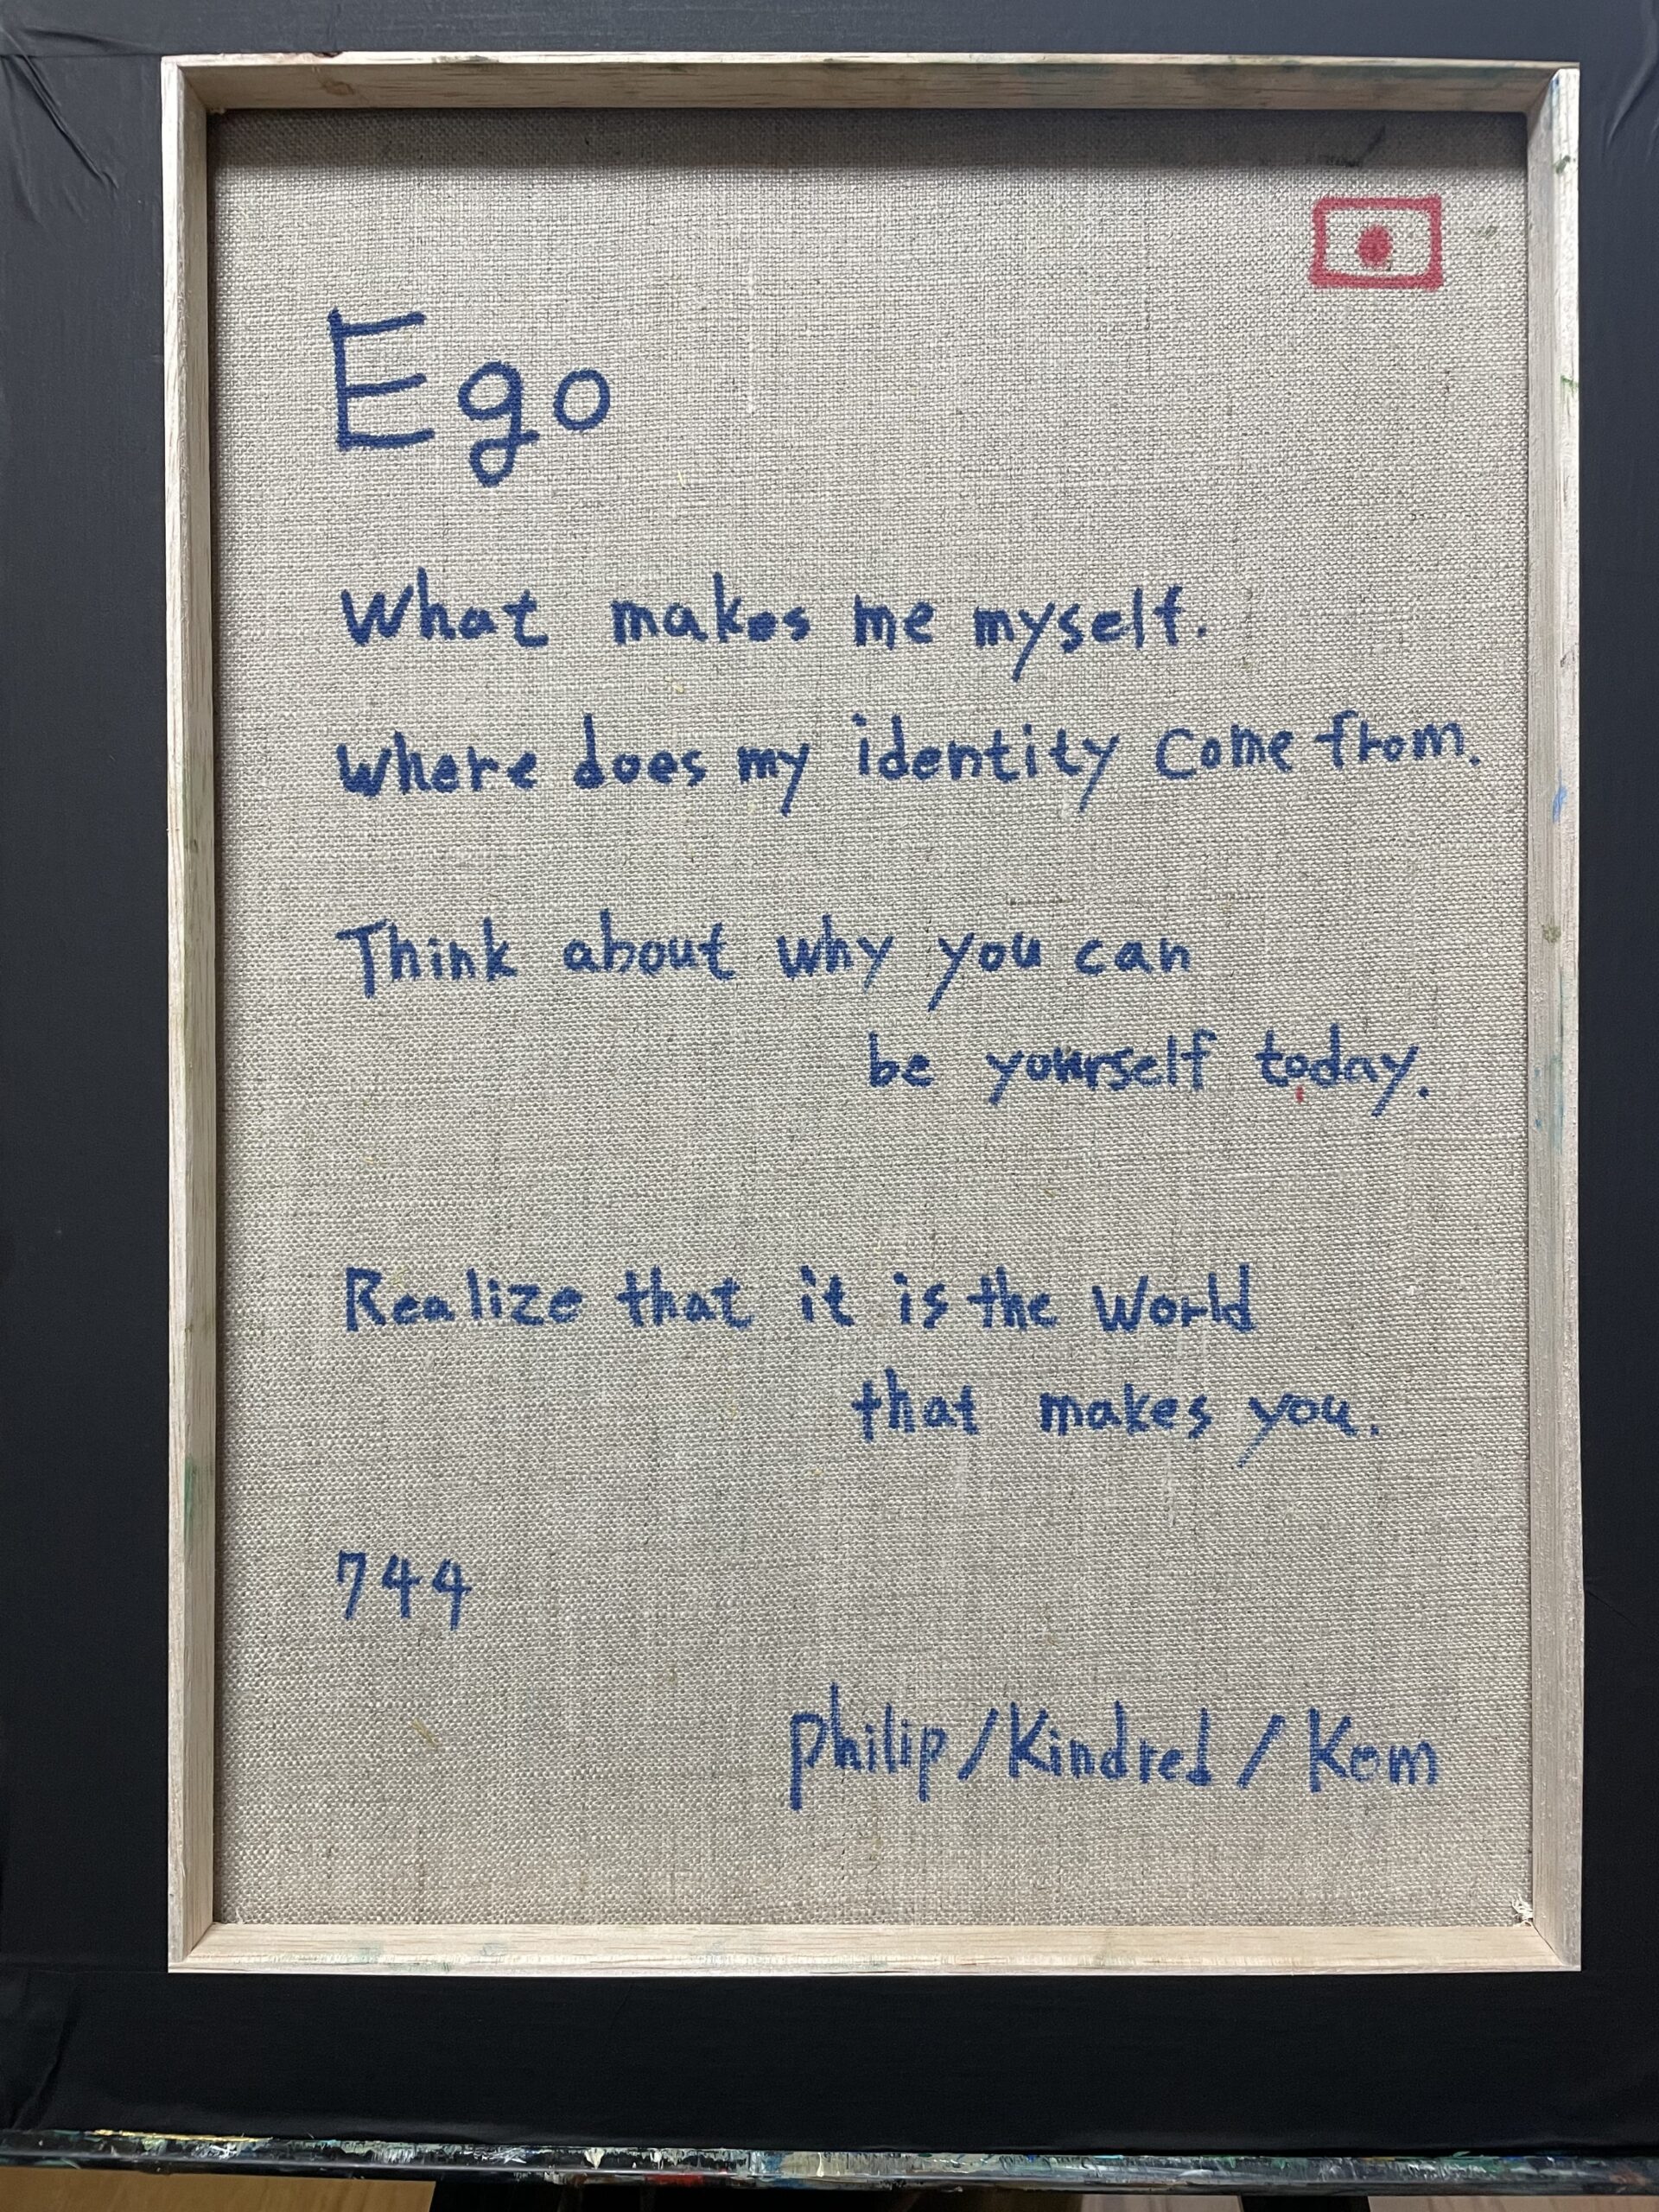 Ego
What makes me myself.
Where does my identity Come from.
Think about why you can
be yourself today.
Realize that it is the World
that makes you.
744
Philip/Kindred/Kom